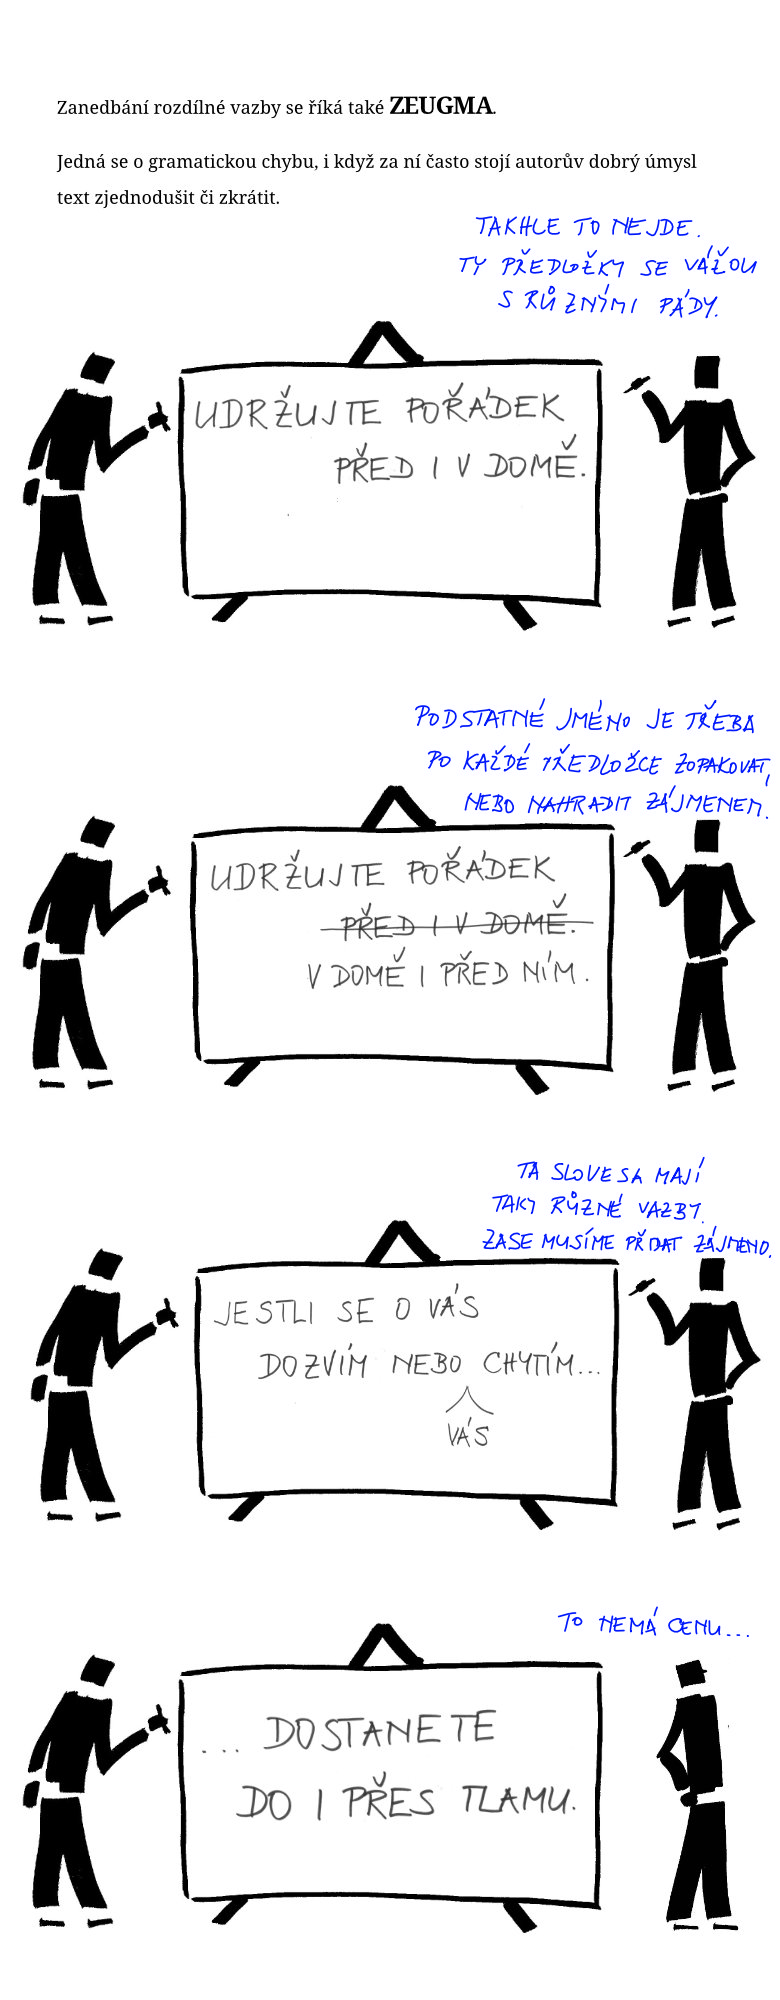 Zanedbání rozdílné vazby se říká také ZEUGMA.
Jedná se o gramatickou chybu, i když za ní často stojí autorův dobrý úmysl
text zjednodušit či zkrátit.
TAKHLE TO NEJDE.
TY PŘEDLOŽKY SE VÁŽOU
S RŮZNÝMI PÁDY.
UDRŽUJTE POŘÁDEK
PŘED I V DOMĚ.
PODSTATNÉ JMÉNO JE TŘEBA
PO KAŽDÉ PŘEDLOŽCE ZOPAKOVAT,
NEBO NAHRADIT ZÁJMENEM.
UDRŽUJTE POŘÁDEK
PŘED I V DOMĚ.
V DOMĚ I PŘED NÍM.
TA SLOVESA MAJÍ
TAKY RŮZNÉ VAZBY.
ZASE MUSÍME PŘIDAT ZÁJMENO.
JESTLI SE O VÁS
DOZVÍM NEBO CHYTÍM...
VÁS
TO NEMÁ CENU...
... DOSTANETE
DO I PŘES TLAMU.